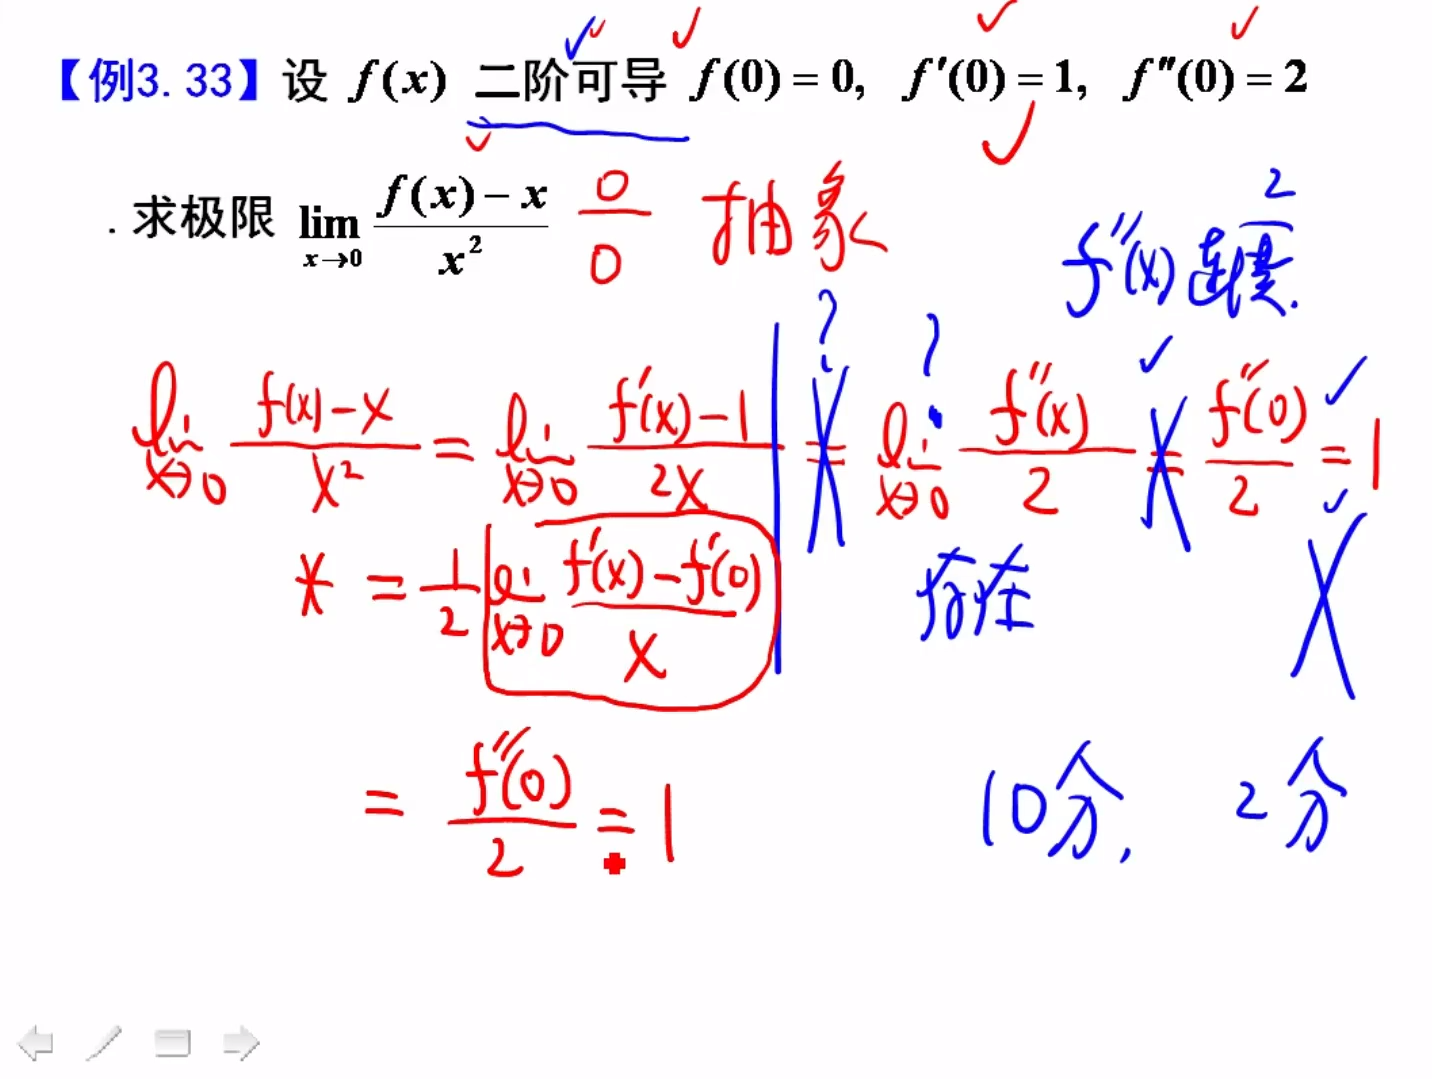 【例3.33】设 f(x) 二阶可导 f(0) = 0, f′(0) = 1, f″(0) = 2
. 求极限 lim x→0 (f(x) − x)/x² 0/0 抽象
2
f″(x) 连续.
? ?
lim x→0 (f(x)−x)/x² = lim x→0 (f′(x)−1)/2x = lim x→0 f″(x)/2 = f″(0)/2 = 1
* = 1/2 lim x→0 (f′(x)−f′(0))/x 存在
= f″(0)/2 = 1 10分, 2分